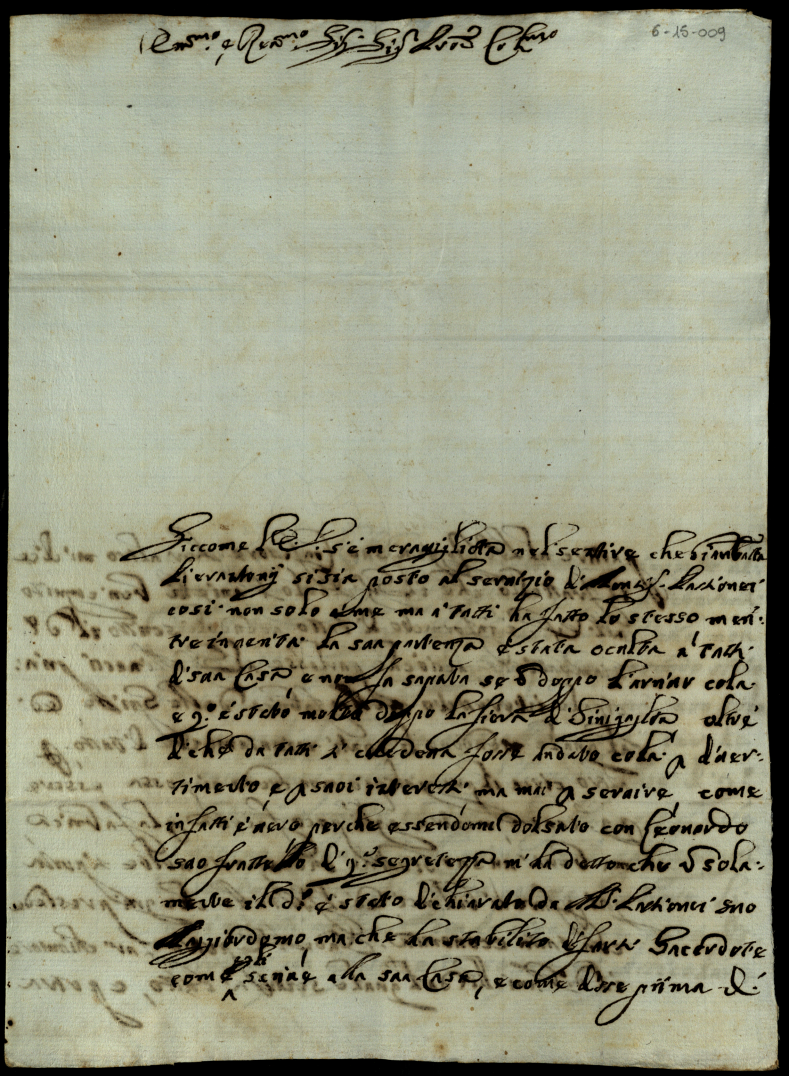 6-15-009
Sig.
Siccome V.S. s'è meravigliata nel sentire che Giambatta
Pierantonij si sia posto al servizio di Mons. Passionei
così non solo a me ma a tutti ha fatto lo stesso men-
tre in verità la sua partenza è stata oculta a tutti
di sua Casa e non fù saputa se doppo l'arrivar cola
e q.º è stato molto doppo la fiera di Sinigaglia oltre
di che da tutti si credeva fosse andato colà p diver-
timento e p suoi interessi ma mai p servire come
infatti è vero perche essendomi dolsuto con Leonardo
suo fratello di q.ª segretezza m'ha detto che ñ sola-
mente il di è stato dichiarato da Passionei suo
ma che ha stabilito di farsi Sacerdote
come scrive alla sua Casa, e come disse prima di